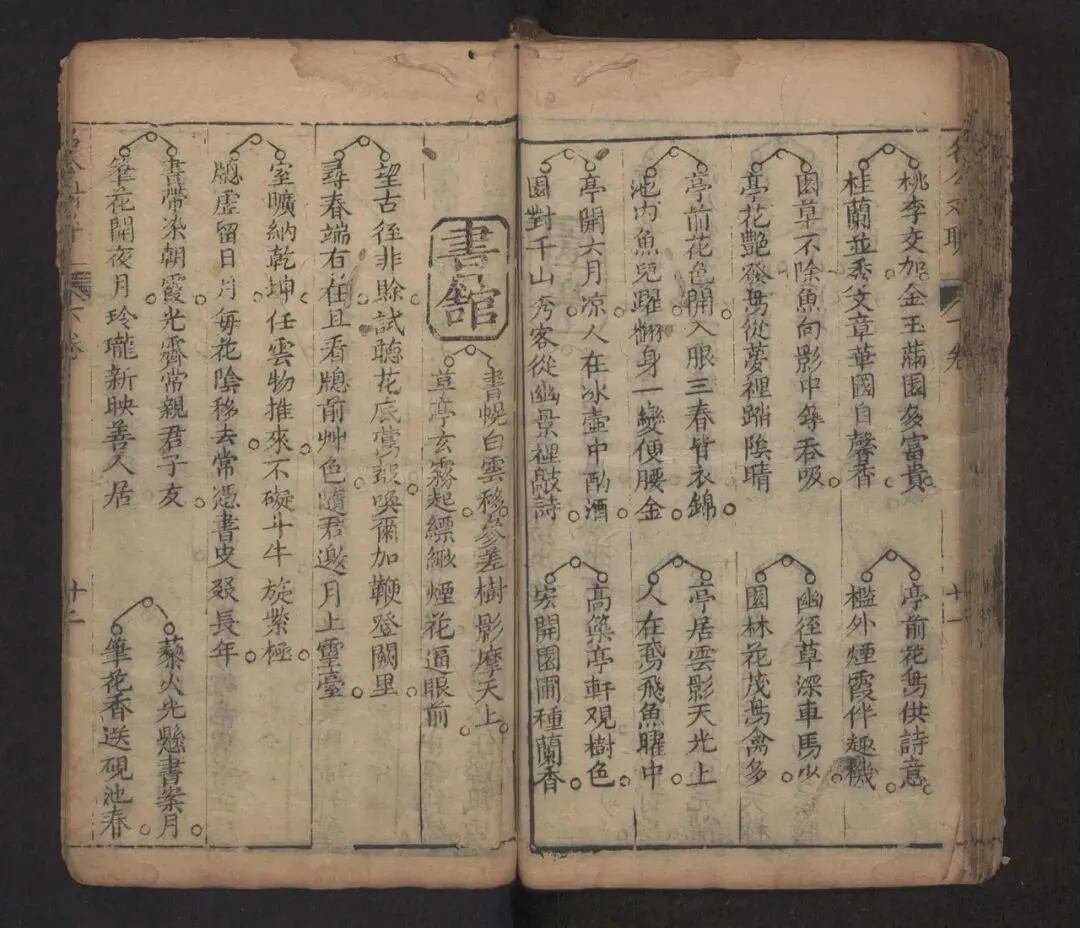 名公对联
下卷
十一
桃李交加金玉滿園多富貴
桂蘭並秀文章華國自馨香
亭前花鳥供詩意
檻外煙霞伴趣機
園草不除魚向影中每吞吸
亭花艷發鳥從夢裡踏陰晴
幽徑草深車馬少
園林花茂鳥禽多
亭前花色開入眼三春皆衣錦
池內魚兒躍翻身一變便腰金
亭居雲影天光上
人在鳶飛魚躍中
亭開六月凉人在冰壺中酌酒
園對千山秀客從幽景裡敲詩
高築亭軒观樹色
宏開園圃種蘭香
書舘
書幌白雲移參差樹影摩天上
草亭玄霧起縹緲煙花逼眼前
望古徑非賒試聽花底鶯聲喚爾加鞭登闕里
尋春端有在且看牕前艸色隨君邀月上靈臺
室曠納乾坤任雲物推來不礙斗牛旋紫極
牕虛留日月每花陰移去常憑書史發長年
書帶染朝霞光霽常親君子友
筆花開夜月玲瓏新映善人居
藜火光懸書案月
筆花香送硯池春
下卷
十二